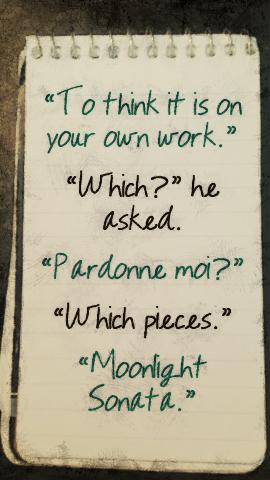 “To think it is on
your own work.”
“Which?” he
asked.
“Pardonne moi?”
“Which pieces.”
“Moonlight
Sonata.”